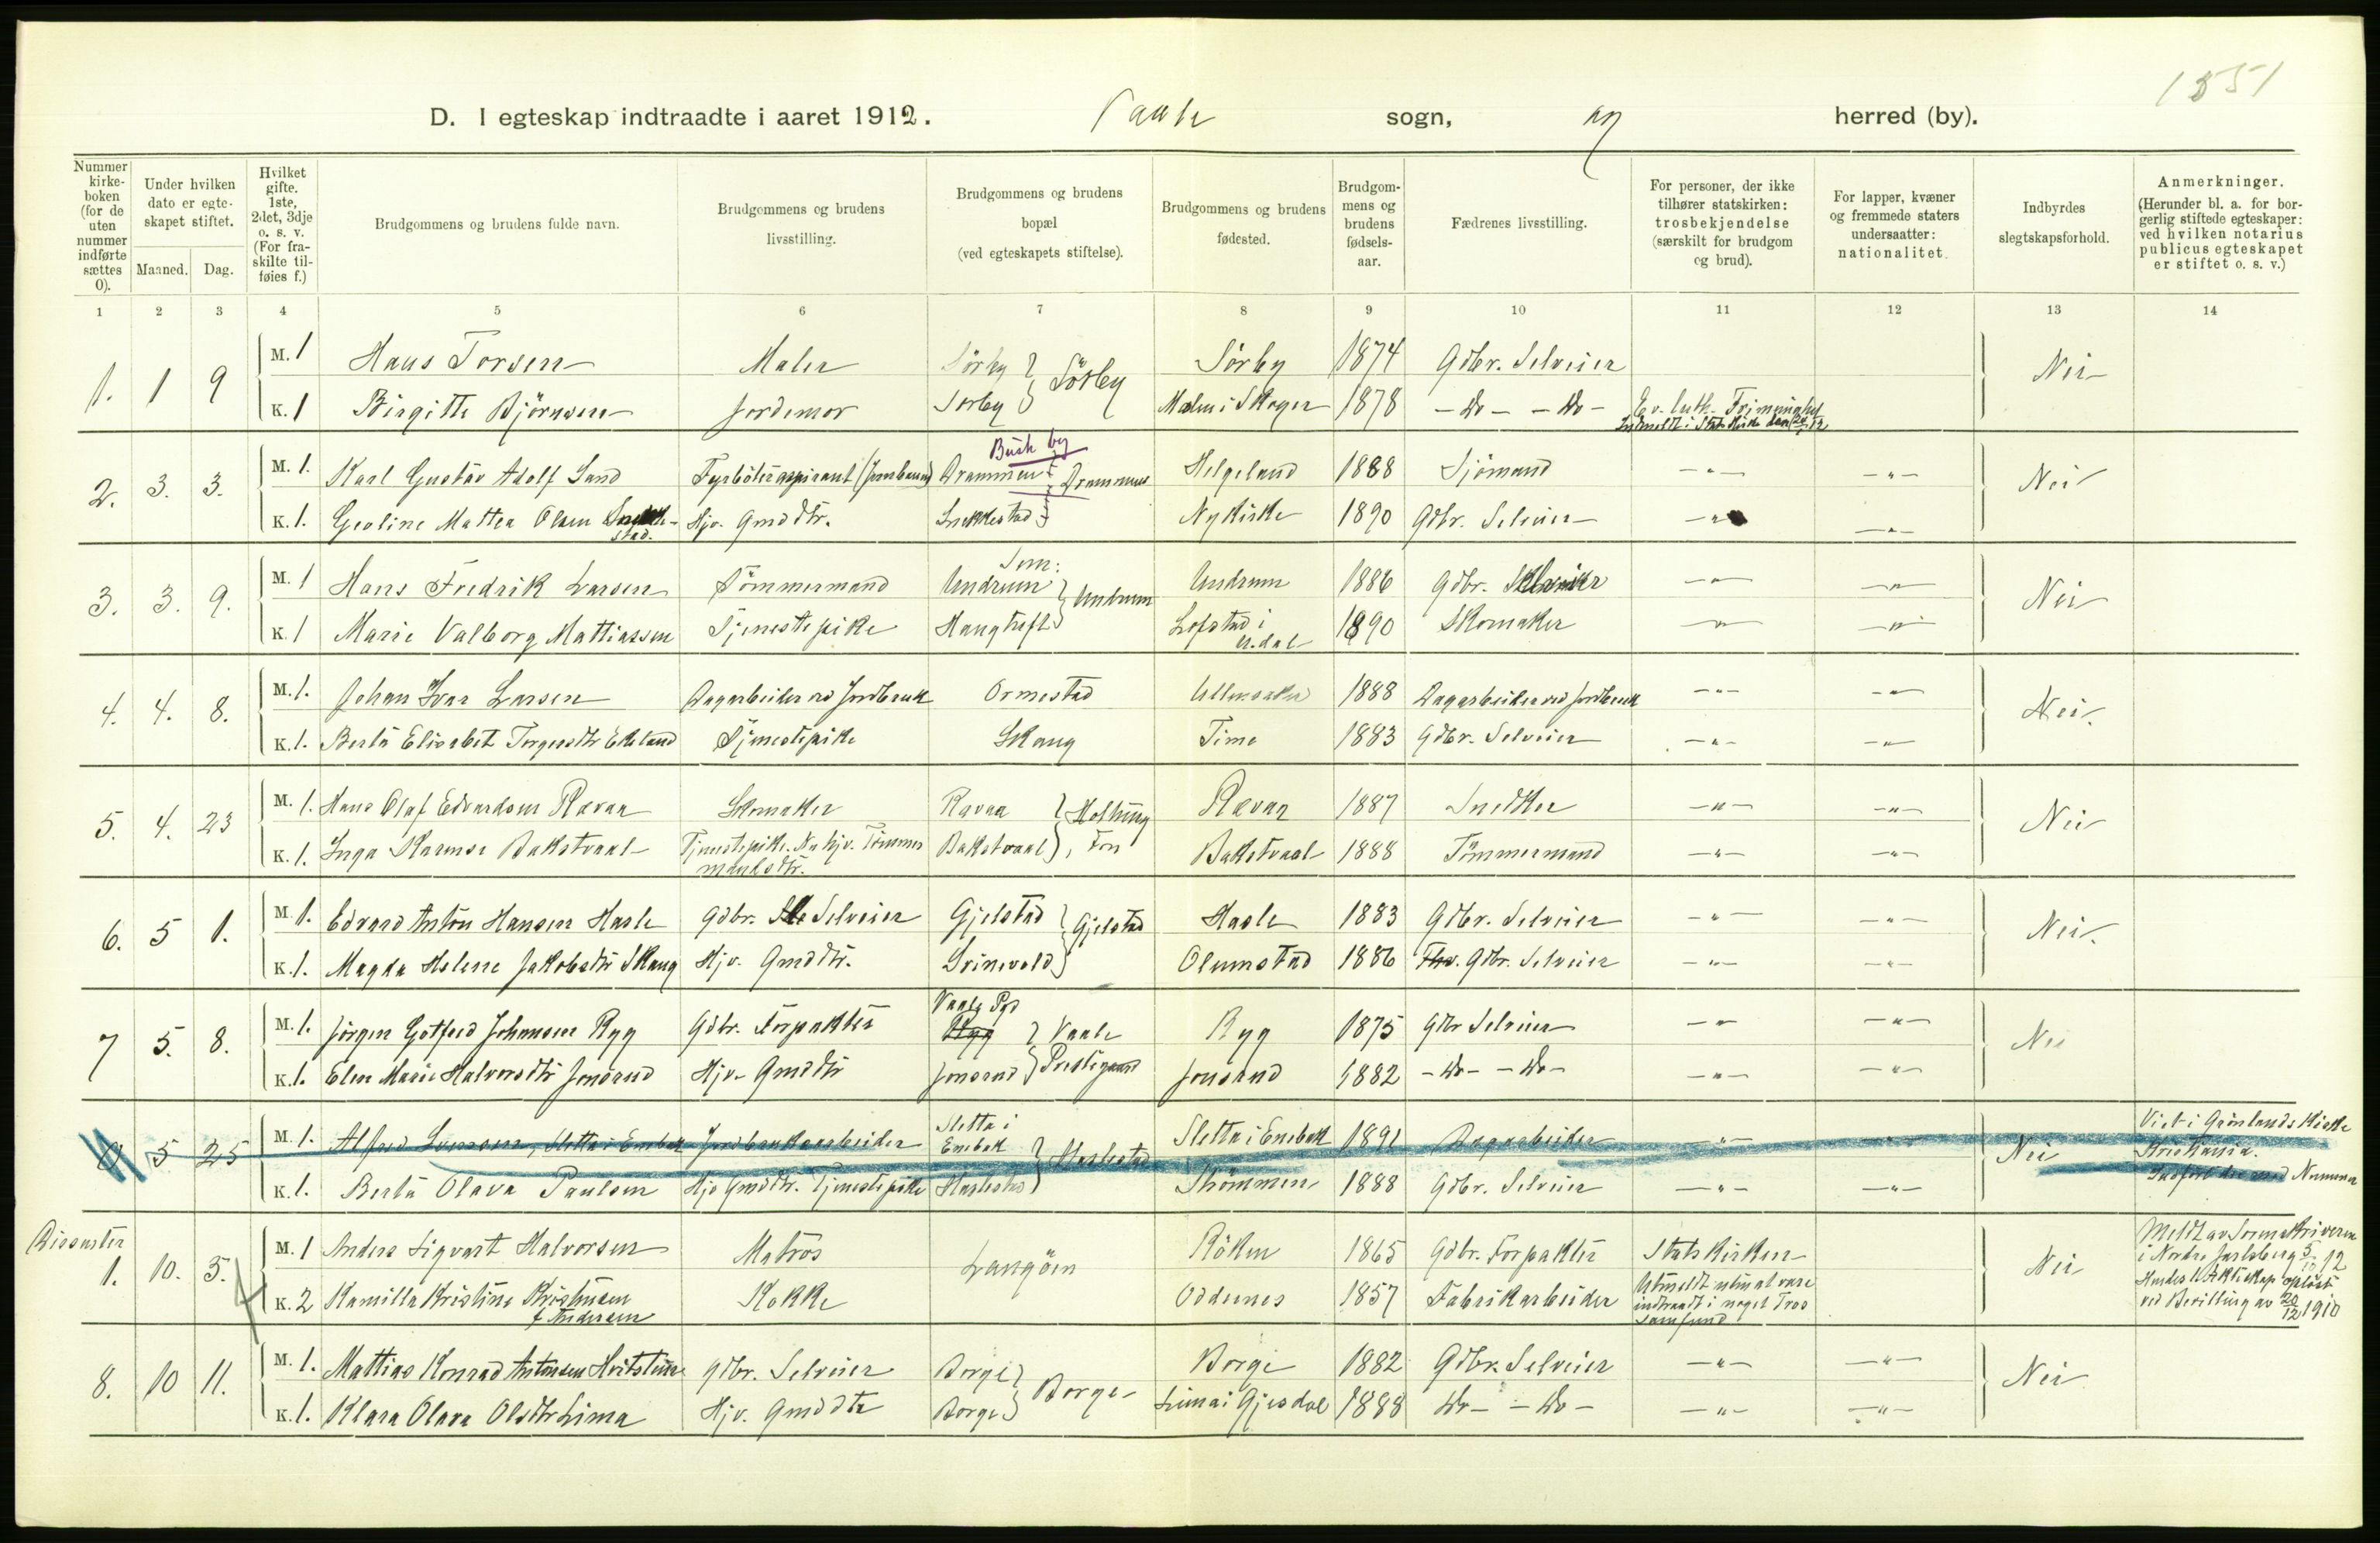 1851
D. I egteskap indtraadte i aaret 1912. Vaale sogn, herred (by).
Nummer kirkeboken (for de uten nummer indførte sættes 0).
Under hvilken dato er egteskapet stiftet.
Maaned. Dag.
Hvilket gifte. 1ste, 2det, 3dje o. s. v. (For fraskilte tilføies f.)
Brudgommens og brudens fulde navn.
Brudgommens og brudens livsstilling.
Brudgommens og brudens bopæl (ved egteskapets stiftelse).
Brudgommens og brudens fødested.
Brudgommens og brudens fødselsaar.
Fædrenes livsstilling.
For personer, der ikke tilhører statskirken: trosbekjendelse (særskilt for brudgom og brud).
For lapper, kvæner og fremmede staters undersaatter: nationalitet.
Indbyrdes slegtskapsforhold.
Anmerkninger. (Herunder bl. a. for borgerlig stiftede egteskaper: ved hvilken notarius publicus egteskapet er stiftet o. s. v.)
1 2 3 4 5 6 7 8 9 10 11 12 13 14
1. 1 9 M. 1 Hans Torsen Maler Sörby } Sörby Sörby 1874 Gdbr. Selveier Nei
K. 1 Birgitte Björnsen Jordemor Sörby Malm i Skoger 1878 - Do - - Do - Ev. luth. Frimenighet
Indmeldt i Statskirken den
Busk by
2. 3. 3. M. 1. Karl Gustav Adolf Sand Fyrböteraspirant (Jernbanen) Drammen } Drammen Helgeland 1888 Sjömand - " - - " - Nei
K. 1. Geoline Mattea Olsen Snekkestad. Hjv. Gmddtr. Snekkestad Nykirke 1890 Gdbr. Selveier - " - - " -
Sem:
3. 3. 9. M. 1 Hans Fredrik Larsen Tömmermand Undrum } Undrum Undrum 1886 Gdbr. Selveier - " - - " - Nei
K. 1 Marie Valborg Mattiassen Tjenestepike Haugtuft Lofstad i A.dal 1890 Skomaker - " - - " -
4. 4. 8. M. 1. Johan Ivar Larsen Dagarbeider ved Jordbruk Ormestad Ullensaker 1888 Dagarbeider ved Jordbruk - " - - " - Nei.
K. 1. Berta Elisabet Torgersdtr Ekeland Tjenestepike Skaug Time 1883 Gdbr. Selveier - " - - " -
5. 4. 23 M. 1. Hans Olaf Edvardsen Ravaa Skomaker Ravaa } Holtung Ravaa 1887 Snedker - " - - " - Nei
K. 1. Inga Karense Bakstvaal Tjenestepike. Nu hjv. Tömmermandsdtr. Bakstvaal , Fon Bakstvaal 1888 Tömmermand - " - - " -
6. 5 1. M. 1. Edvard Anton Hansen Hasle Gdbr. Selveier Gjelstad } Gjelstad Hasle 1883 Gdbr. Selveier - " - - " - Nei.
K. 1. Magda Helene Jakobsdtr Skaug Hjv. Gmddtr. Svinevold Olumstad 1886 Fhv. Gdbr. Selveier - " - - " -
Vaale Pgd
7 5. 8. M. 1. Jörgen Gotfred Johansen Ryg Gdbr. Forpakter Ryg } Vaale Ryg 1875 Gdbr Selveier - " - - " - Nei
K. 1. Elen Marie Halvorsdtr Jonsrud Hjv. Gmddtr Jonsrud Prestegaard Jonsrud 1882 - Do - - Do - - " - - " -
0 5 25 M. 1. Alfred Svensen, Sletta i Enebak Jordbruksarbeider Sletta i Enebak } Haslestad Sletta i Enebak 1891 Dagarbeider - " - - " - Nei Viet i Grönlands Kirke Kristiania.
K. 1. Berta Olava Paulsen Hjv Gmddtr. Tjenestepike Haslestad Strömmen 1888 Gdbr. Selveier - " - - " - Indfört her uten Nummer
Dissenter
1. 10. 5. M. 1 Anders Sigvart Halvorsen Matros Langöen Röken 1865 Gdbr. Forpakter Statskirken Nei Meldt av Sorenskriveren i Nordre Jarlsberg 5/10 12
K. 2 Kamilla Kristine Kristensen f Andersen Kokke Oddernes 1857 Fabrikarbeider Utmeldt uten at være indtraadt i noget Trossamfund Hendes 1. Ekteskap oplöst ved Bevilling av 20/12 1910
8. 10 11. M. 1. Mattias Konrad Antonsen Hvitstein Gdbr. Selveier Borge } Borge Borge 1882 Gdbr. Selveier - " - - " - Nei
K. 1. Klara Olava Olsdtr Lima Hjv. Gmddtr Borge Lima i Gjesdal 1888 Do - - Do - - " - - " -